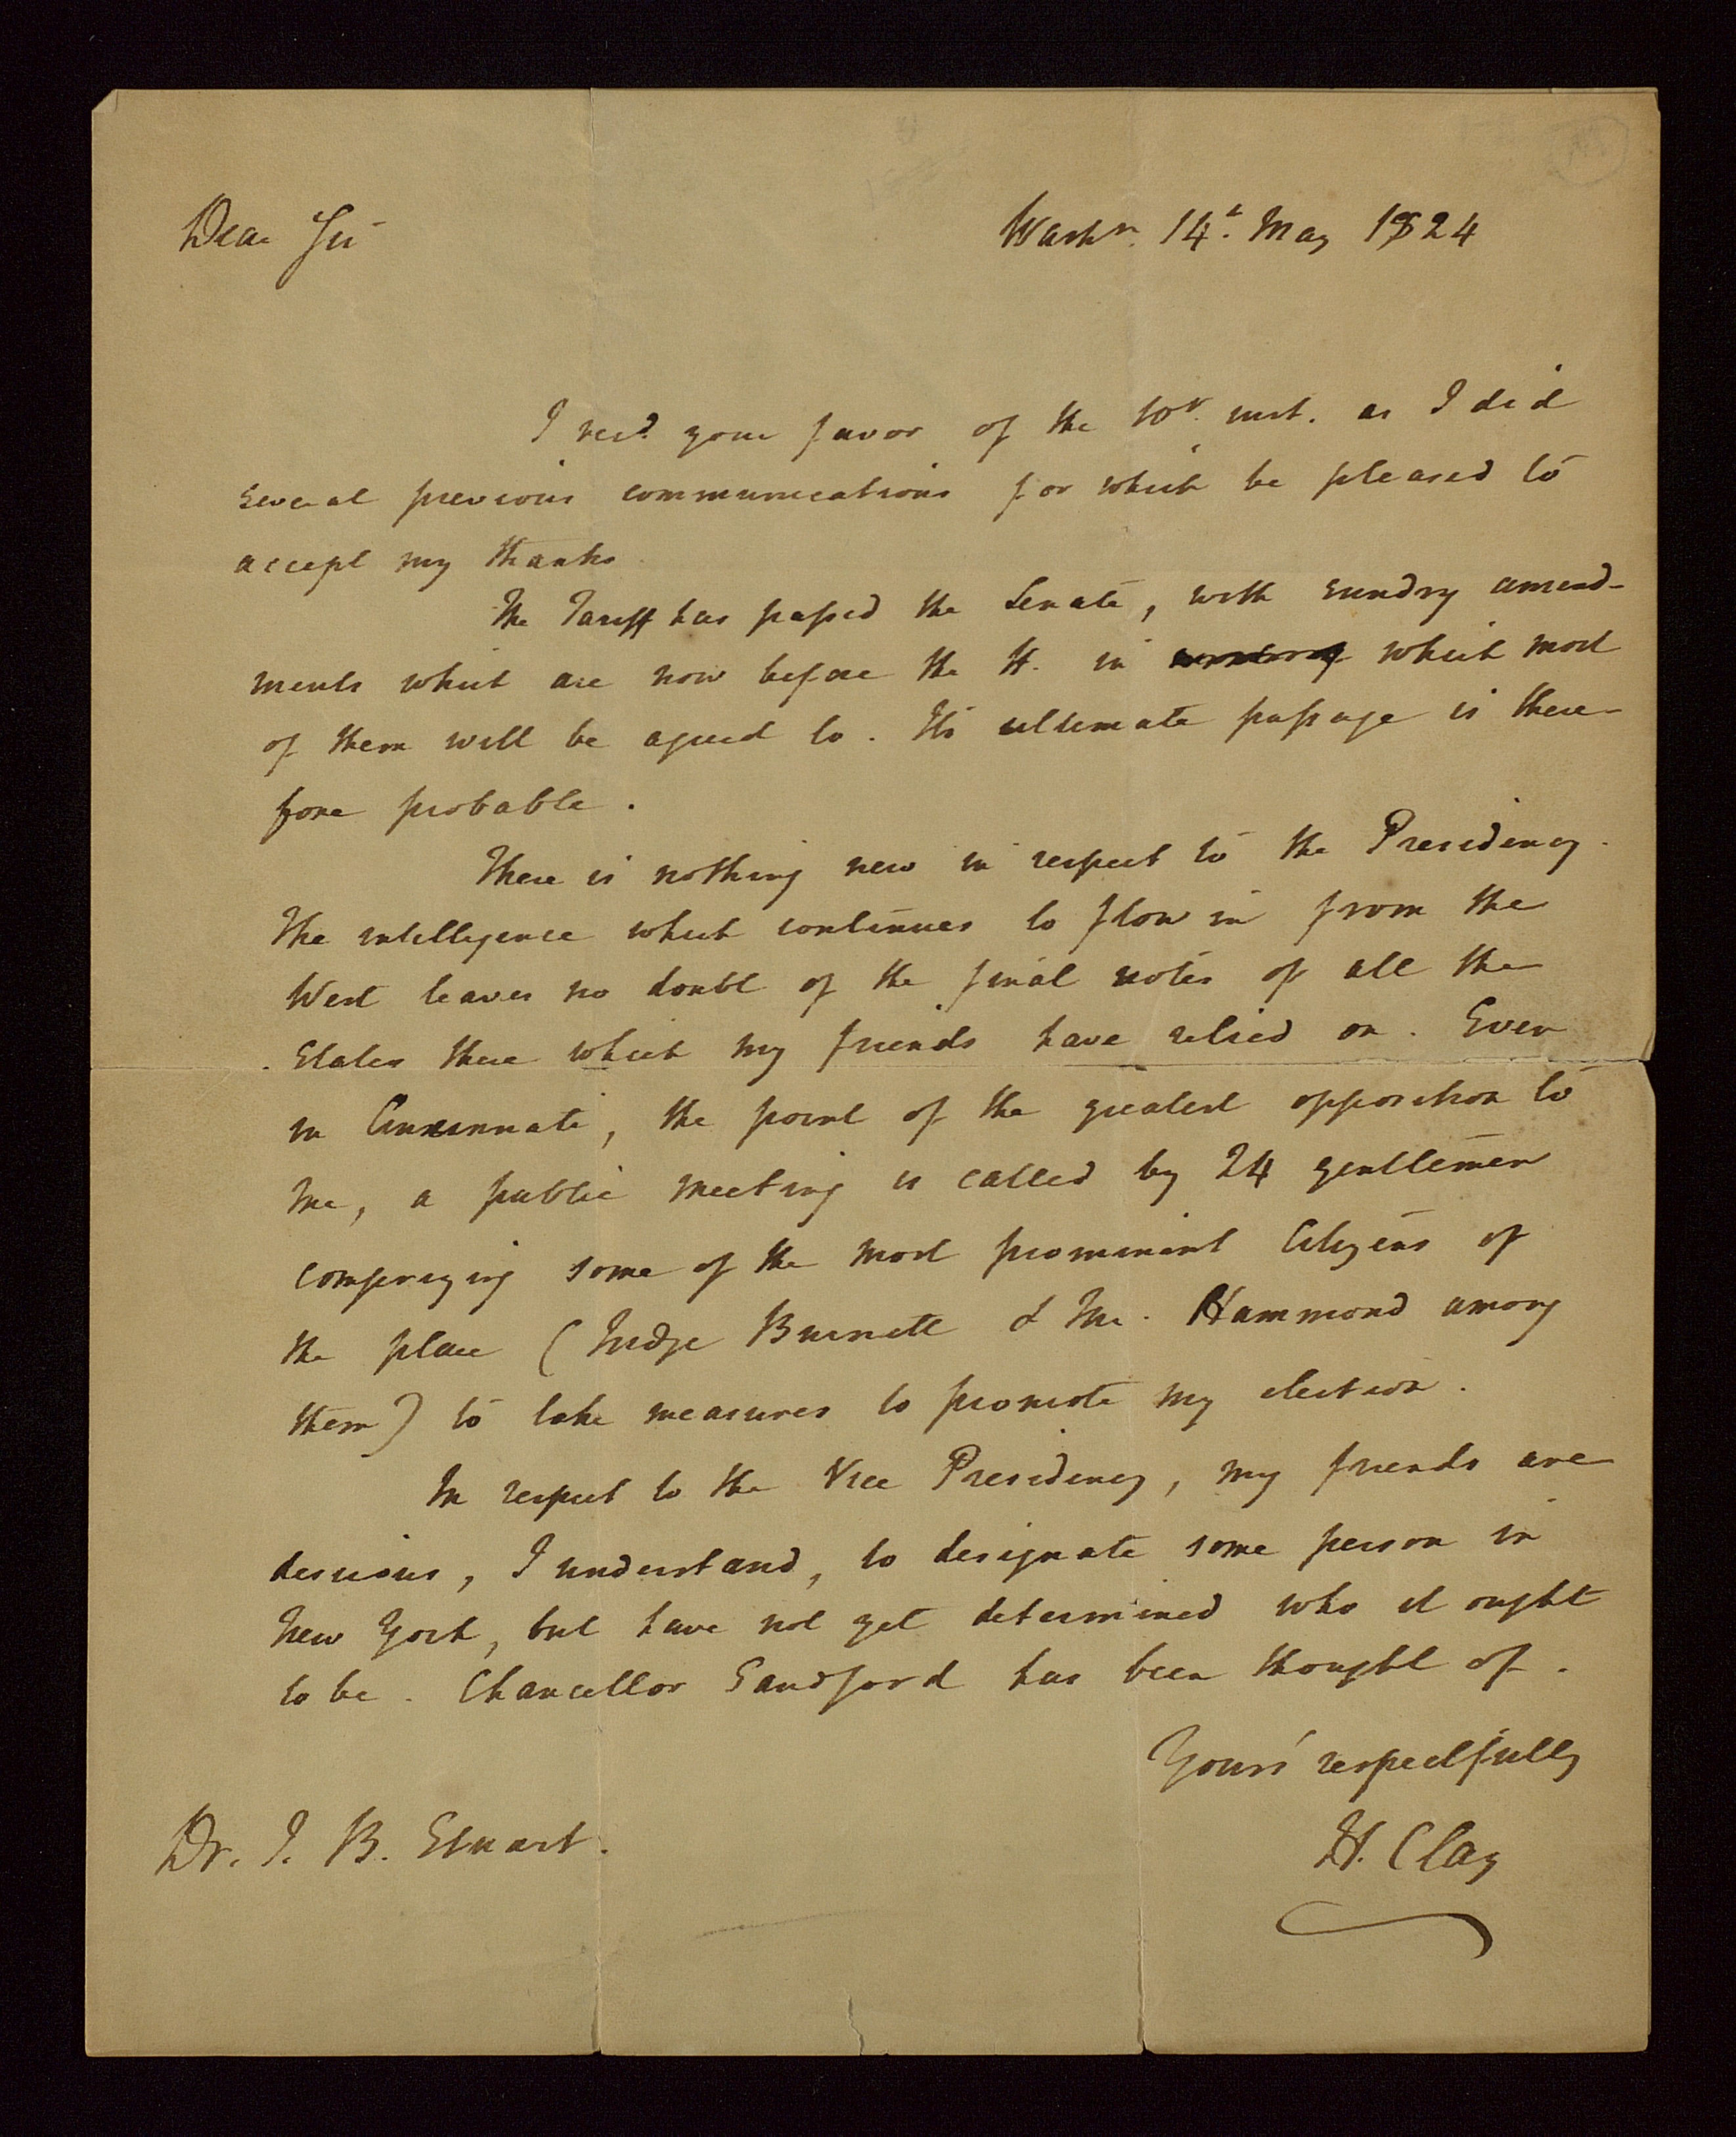 Dear Sir
Washn. 14h. May 1824
I recd. your favor of the 10h. inst. as I did
several previous communications for which be pleased to
accept my thanks
The Tariff has passed the Senate, with sundry amend-
ments which are now before the H. in which most
of them will be agreed to. Its ultimate passage is there-
fore probable.
There is nothing new in respect to the Presidency.
The intelligence which continues to flow in from the
West leaves no doubt of the final votes of all the
States there which my friends have relied on. Even
in Cincinnati, the point of the greatest opposition to
me, a public meeting is called by 24 gentlemen
comprizing some of the most prominent Citizens of
the place (Judge Burnett & Mr. Hammond among
them) to take measures to promote my election.
In respect to the Vice Presidency, my friends are
desirous, I understand, to designate some person in
New York, but have not yet determined who it ought
to be. Chancellor Sandford has been thought of.
Yours respectfully
H. Clay
Dr. J. B. Stuart.